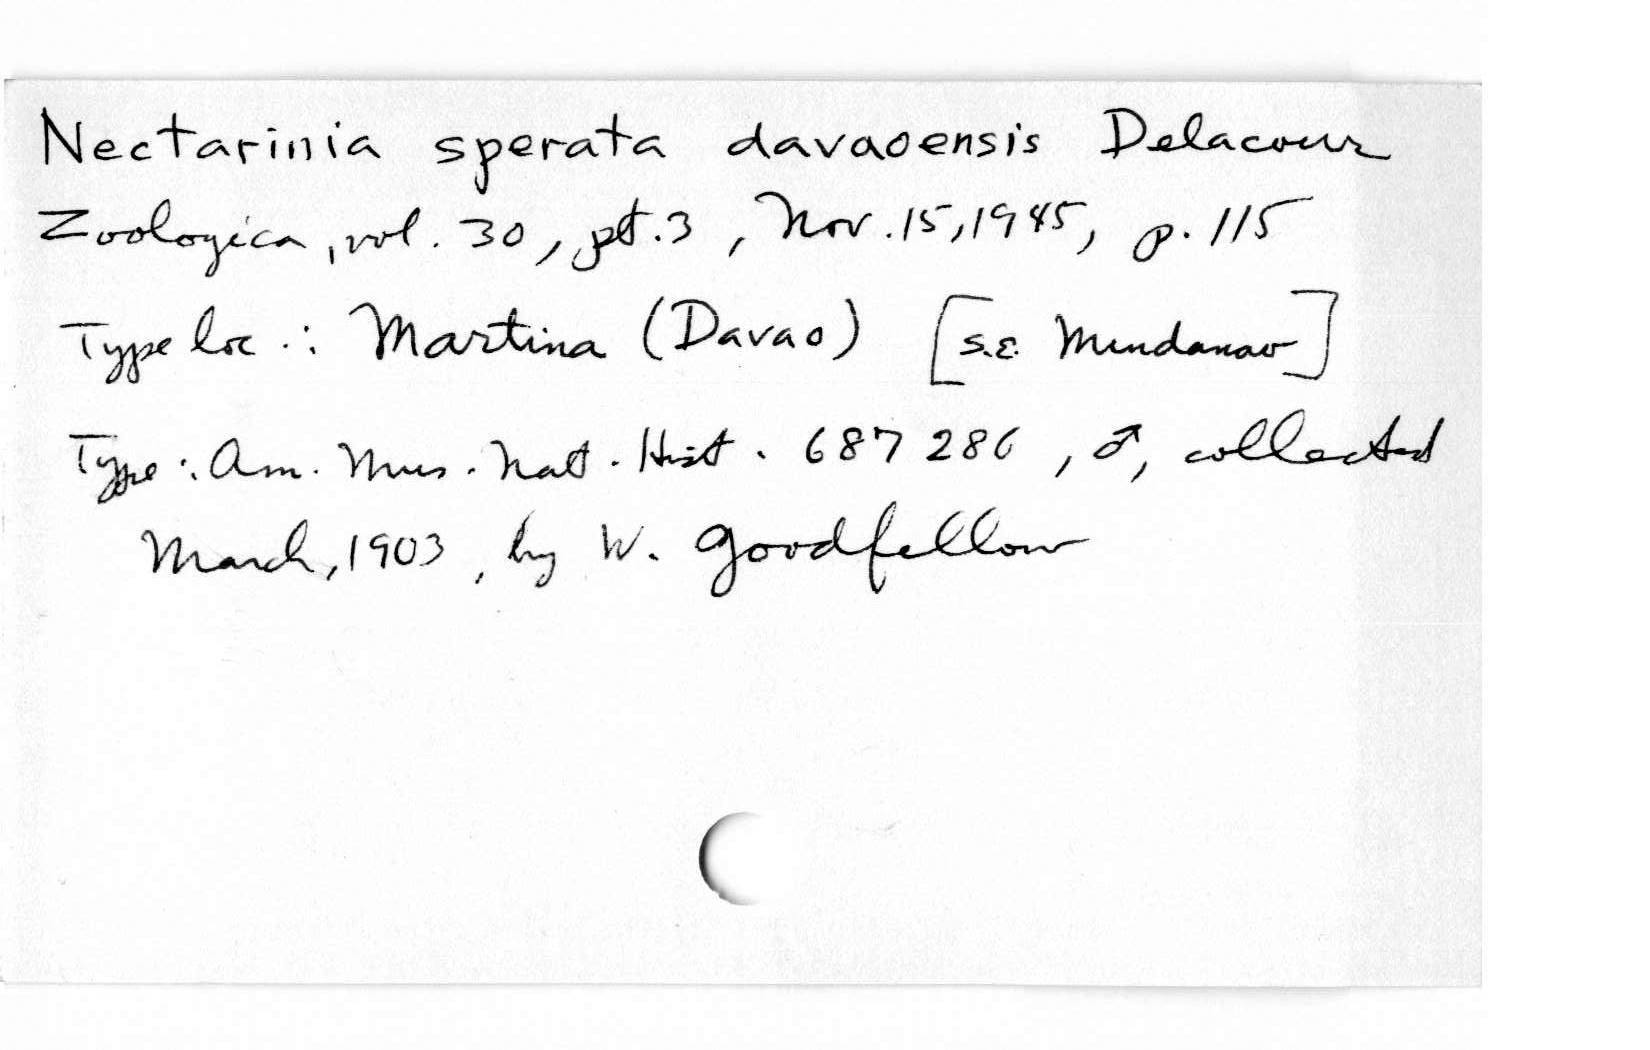 Nectarinia sperata davaoensis Delacour
Zoologica, vol. 30, pt. 3, Nov. 15, 1945, p. 115
Type loc.: Martina (Davao) [S.E. Mindanao]
Type: Am. Mus. Nat. Hist. 687286, ♂, collected
March, 1903, by W. Goodfellow